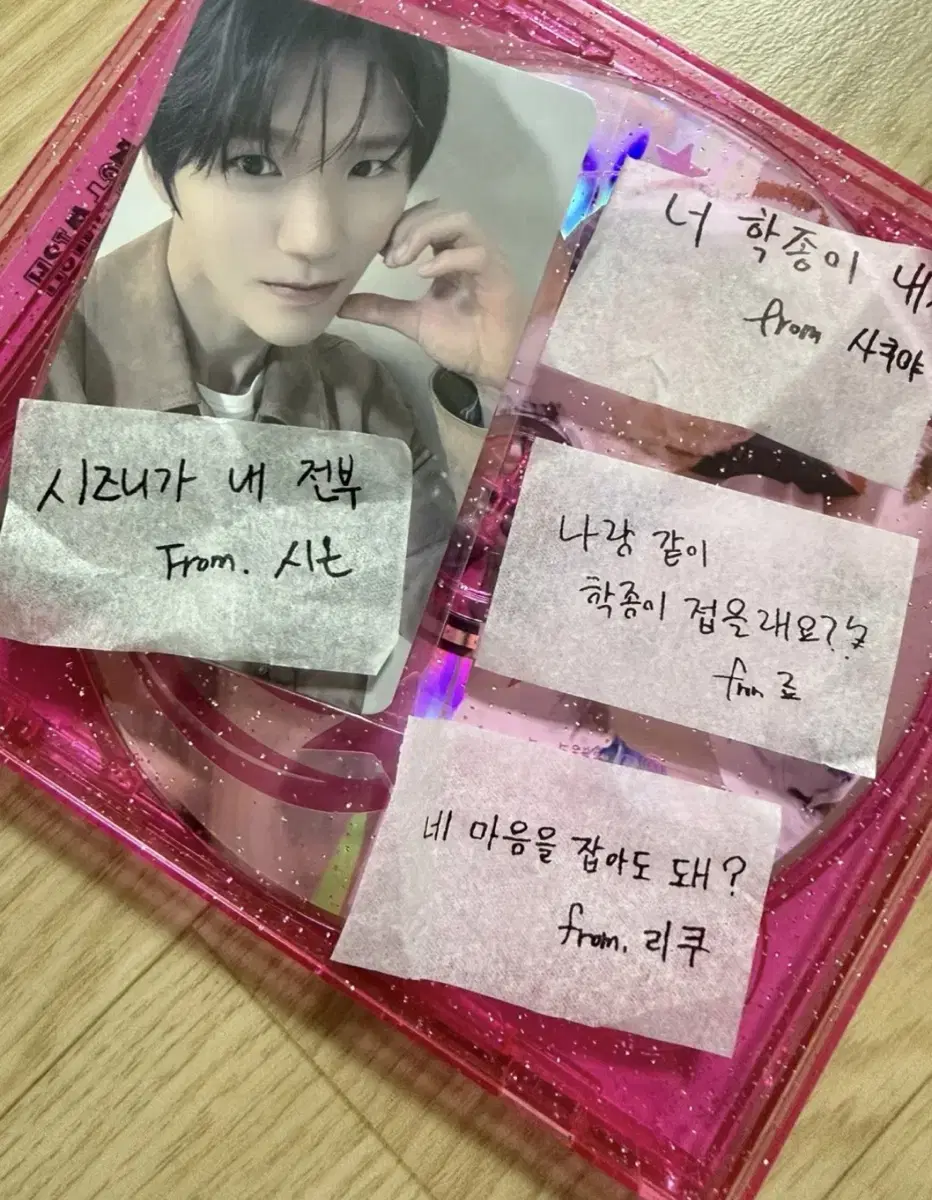 너 학종이 내
from 사쿠야
시즈니가 내 전부
From. 시온
나랑 같이
학종이 접을래요??
from 료
네 마음을 잡아도 돼?
from. 리쿠